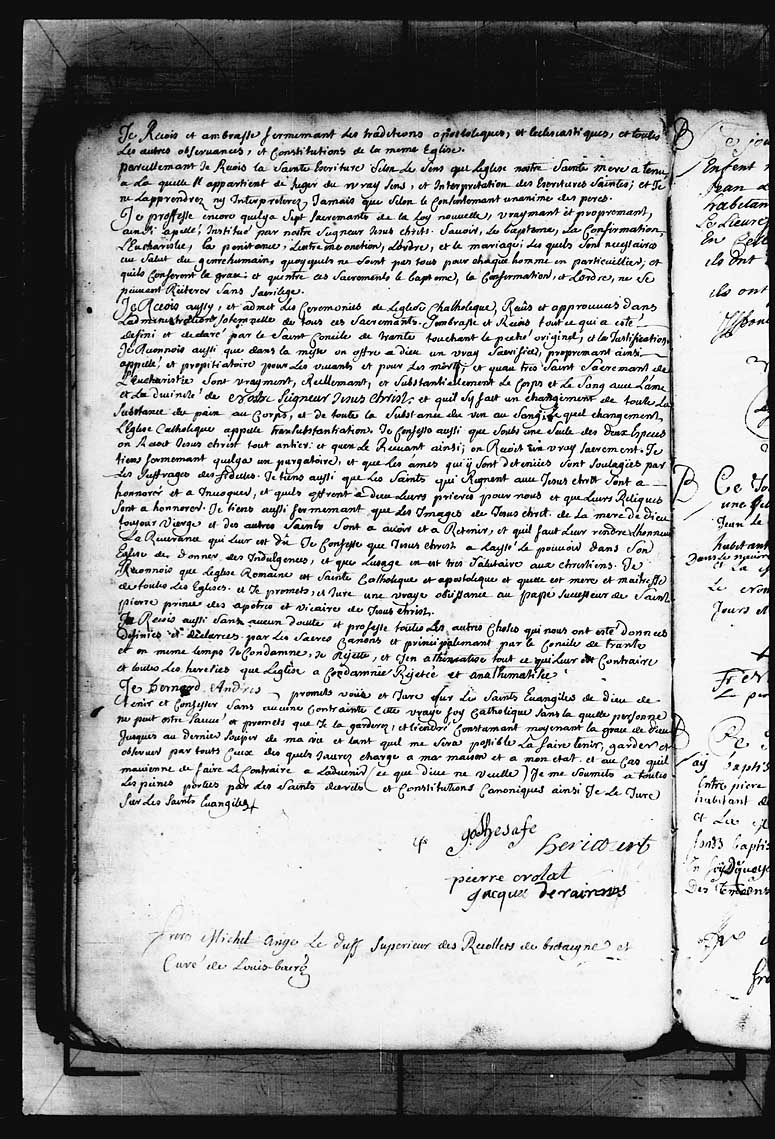 Je Recois et ambrasse fermemant Les traditions apostoleques, et Ecclesiastiques, et toutes
Les autres observances, et Constitutions de la meme Eglise.
pareillement Je Recois La Sainte Ecriture Selon Le Sens que Leglise nostre Sainte mere a tenu
a La quelle Il appartient de Juger du vray Sens, et Interpretation des Escritures Saintes; et Je
ne Lapprendrez ny Interpreterez Jamais que Selon le Consentemant unanime des peres.
Je proffesse encore quilya Sept Sacremants de la Loy nouvelle, vraymant et propremant,
ainsi apellé, Institué par nostre Signeur Jesus christ. Savoir, Le baptome, La Confirmation,
L'Eucharistie, La penitance, Lextreme onction, Lordre, et Le mariage; Les quels Sont necessaires
au Salut du genrehumain, quoyquils ne Soint pas tous pour chaque homme en particuillier; et
quils Conferent la grace: et quentre ces Sacremants le baptome, la Confirmation, et Lordre, ne Se
peuvent Reiterer Sans Sacrilege.
Je Recois aussy, et admet Les Ceremonies de Leglise Chatholeque, Reçûs et approuvees dans
Ladministration Solemnelle de tous ces Sacremants. J'ombrasse et Recois tout ce qui a esté
defini et declaré par le Saint Concile de trante touchant le peché originel, et La Justification,
Je Reconnois aussi que dans la messe on offre a dieu un vray Sacrifice, propremant ainsi
appellé, et propitiatoire pour Les vivants et pour Les morts, et quau tres Saint Sacremant de
L'Eucharistie Sont vraymant, Reellemant, et Substantiellemant Le Corps et Le Sang avec Lame
et La divinité de nostre Seigneur Jesus Christ, et quil Sy fait un changemant de toute La
Substance de pain au Corps, et de toute la Substance du vin au Sang, Le quel changement
L'Eglise Catholique appelle transubstantiation. Je Confesse aussi que Soubs une Seule des deux Especes
on Recoit Jesus christ tout antier: et quen Le Recevant ainsi, on Recoit un vray Sacrement. Je
tiens fermemant quilya un purgatoire, et que Les ames qui y Sont detenues Sont Soulagées par
Les Suffrages des fidelles. Je tiens aussi que Les Saints qui Regnent avec Jesus christ Sont a
honnorer et a Invoquer, et quils offrent a dieu Leurs prieres pour nous et que Leurs Reliques
Sont a honnorer. Je tiens aussi fermemant que Les Images de Jesus Christ, de La mere de dieu
toujour vierge et des autres Saints Sont a avoir et a Retenir, et quil faut Leur rendre Lhonneur
La Reverance qui Leur est dû Je Confesse que Jesus Christ a Laissé le pouvoir dans Son
Eglise de donner des Indulgences, et que Lusage en est tres Salutaire aux chretiens. Je
Reconnois que Leglise Romaine est Sainte Catholique et apostoleque et quelle est mere et maitresse
de toutes Les Eglises. et Je promets, et Jure une vraye obeissance au pape Successeur de Saint
pierre prince des apotres et vicaire de Jesus Christ.
Je Recois aussi Sans aucun doute et professe toutes Les autres Choses qui nous ont esté donnees
definies et declarees par Les Sacres Canons et principalement par le Concile de trante
et en meme temps Je Condamne, Je Rejette, et J'en athematise tout ce qui Leur est Contraire
et toutes Les heresies que Leglise a Condamnée Rejetée et anathematisé.
Je Bernard Andres promets voüe et Jure Sur Les Saints Evangiles de dieu de
tenir et Confesser Sans aucune Contrainte Cette vraye foy Catholique Sans la quelle personne
ne peut estre Sauvé et promets que Je La garderez, et tiendrez Constamant moyenant la grace de dieu
Jusques au dernier Souper de ma vie et tant quil me Sera possible La faire tenir, garder et
observer par touts Ceux des quels Jaurez charge a ma maison et a mon etat. et au Cas quil
mavienne de faire Le Contraire a Ladvenir (ce que dieu ne veuille) Je me Soumets a toutes
Les peines portées par Les Saints decrets et Constitutions Canoniques ainsi Je Le Jure
Sur Les Saints Evangiles
hericourt
pierre crolat
Jacques
frere Michel Ange Le duff Superieur des Recollets de bretaigne et
Curé de Louis-bourg
B
Enfent
Jean
habitant
En
ils ont
ils ont
B Ce Jou
une
Jean Le
habitant
Jours et
Fre
Le per
B
ay baptis
Entre pierre
habitant de
et
fonds baptis